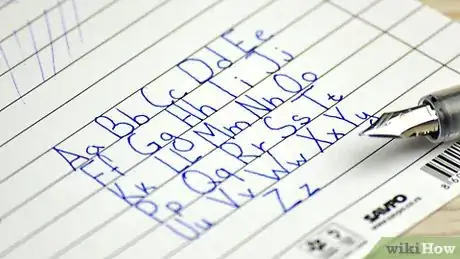 Aa Bb Cc Dd Ee
Ff Gg Hh Ii Jj
Kk Ll Mm Nn Oo
Pp Qq Rr Ss Tt
Uu Vv Ww Xx Yy
Zz
SAVPO
wikiHow